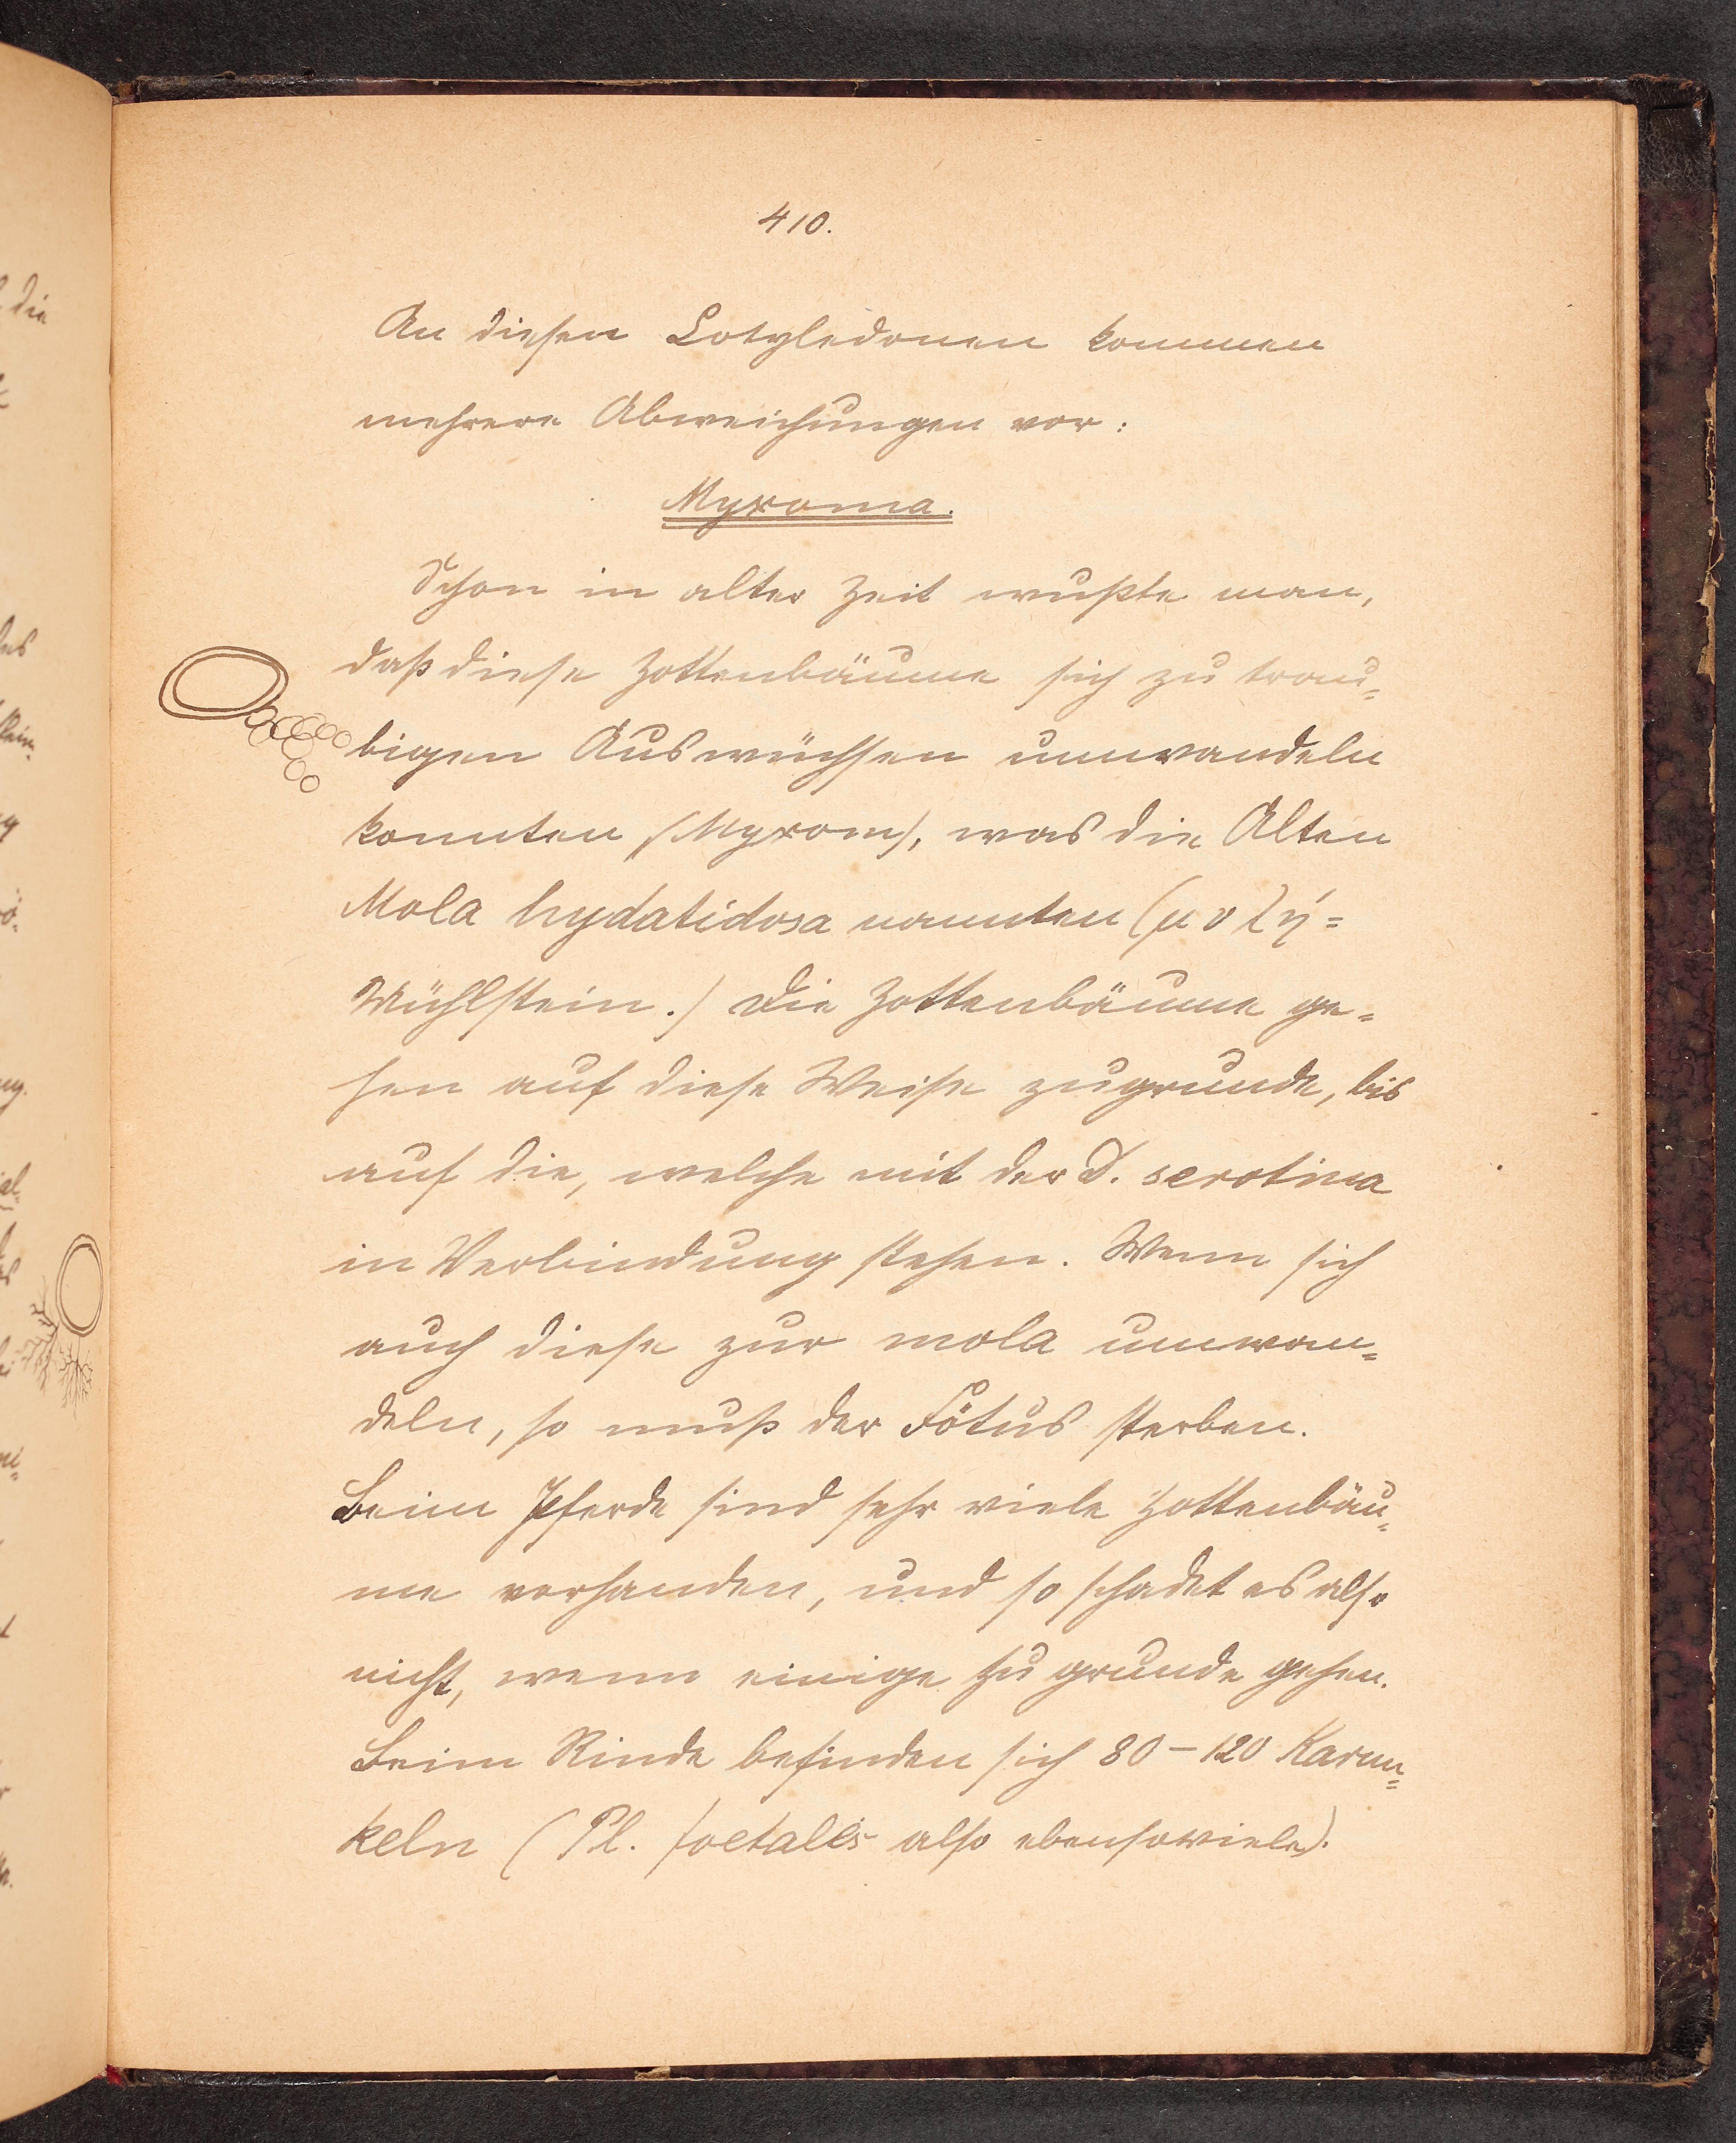 410.
An diesen Cotyledonen kommen
mehrere Abweichungen vor:
Myxoma.
Schon in alter Zeit wußte man,
daß diese Zottenbäume sich zu trau=
bigen Auswüchsen umwandeln
konnten (Myxom), was die Alten
Mola hydatidosa nannten (μολή=
Mühlstein.) Die Zottenbäume ge=
hen auf diese Weise zugrunde, bis
auf die, welche mit der D. serotina
in Verbindung stehen. Wenn sich
auch diese zur mola umwan=
deln, so muß der Fötus sterben.
Beim Pferde sind sehr viele Zottenbäu=
me vorhanden, und so schadet es also
nicht, wenn einige zu grunde gehen.
Beim Rinde befinden sich 80-120 Karun=
keln (Pl. foetalis also ebensoviele).